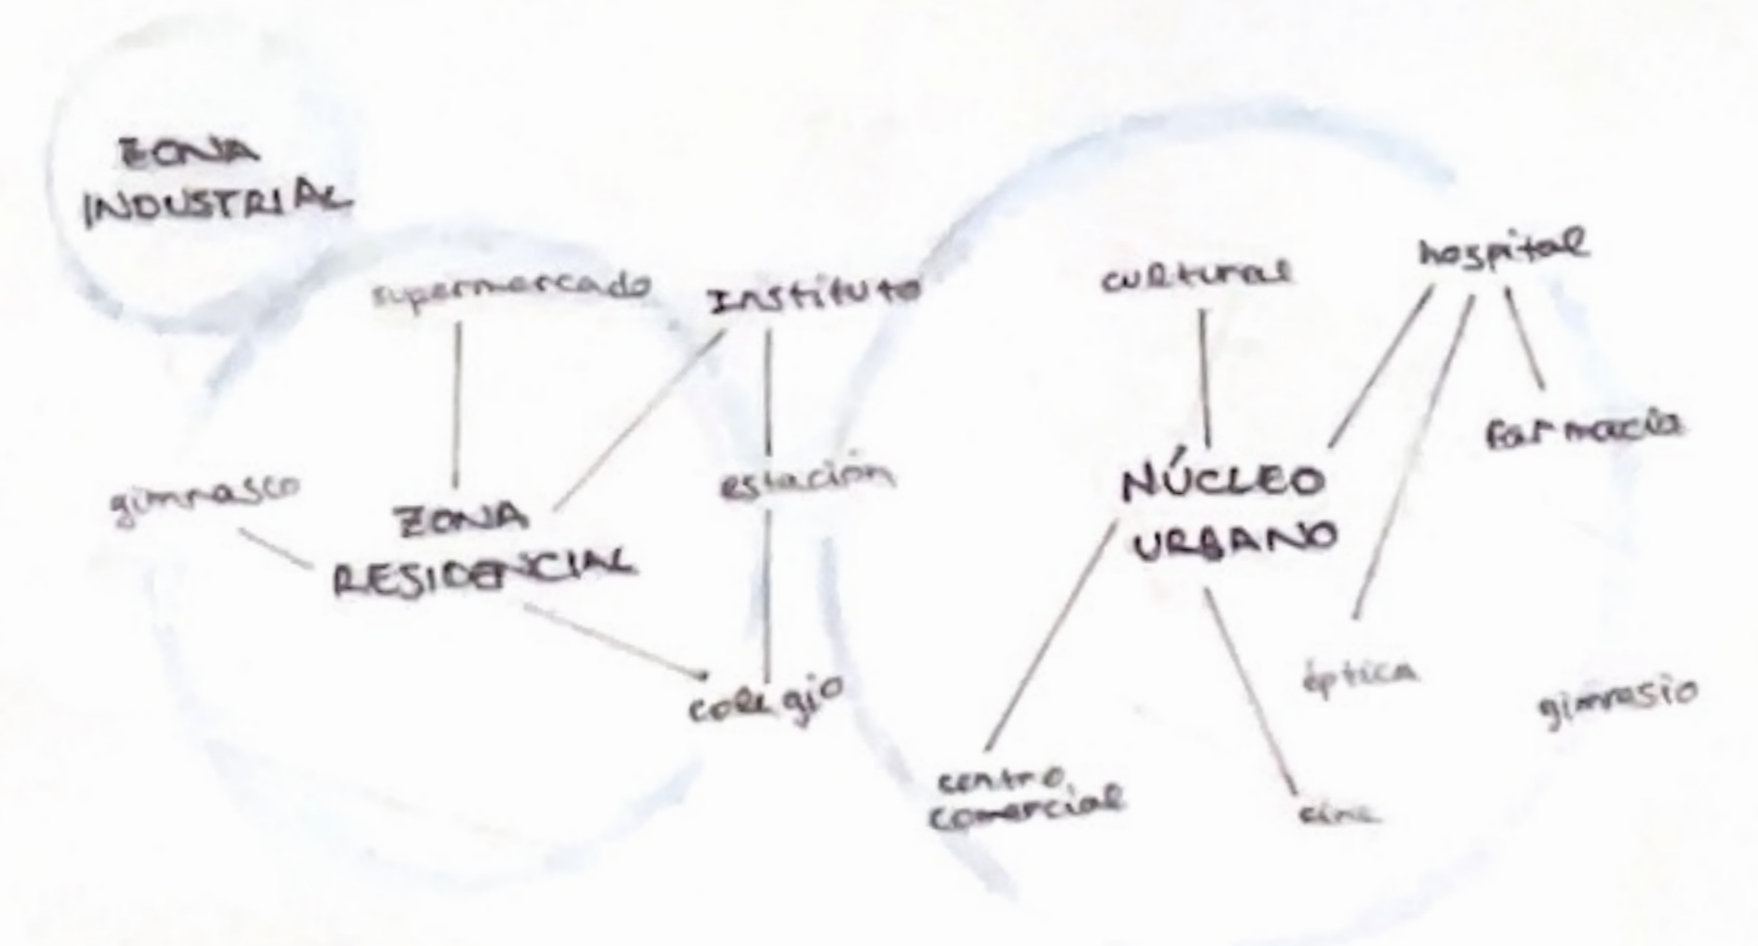 ZONA
INDUSTRIAL
supermercado
Instituto
cultural
hospital
gimnasco
ZONA
RESIDENCIAL
estación
NÚCLEO
URBANO
farmacia
colegio
óptica
gimnasio
centro
comercial
cine